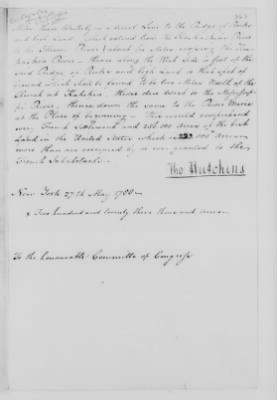 Miles. Thence Westerly in a direct Line to the Ridge of Rocks
and high Land (which extend from the Kaskaskias River
to the Illinois River) about six Miles
kaskias River — thence along the West side & foot of the
said Ridge of Rocks and high Land until the
be found to be two Miles North of the
French at Kahokia. thence due West to the Mississip-
pi River, thence down the same to the River Marie
at the Place of beginning — This would comprehend
every French Settlement and 256,000 Acres of the best
Land in the United States which is 223,000 Acres
more than are occupied by or ever granted to the
French Inhabitants.
Tho Hutchins
New York 27th May 1788 —
x Two hundred and twenty three thousand acres
To the honourable Committee of Congress